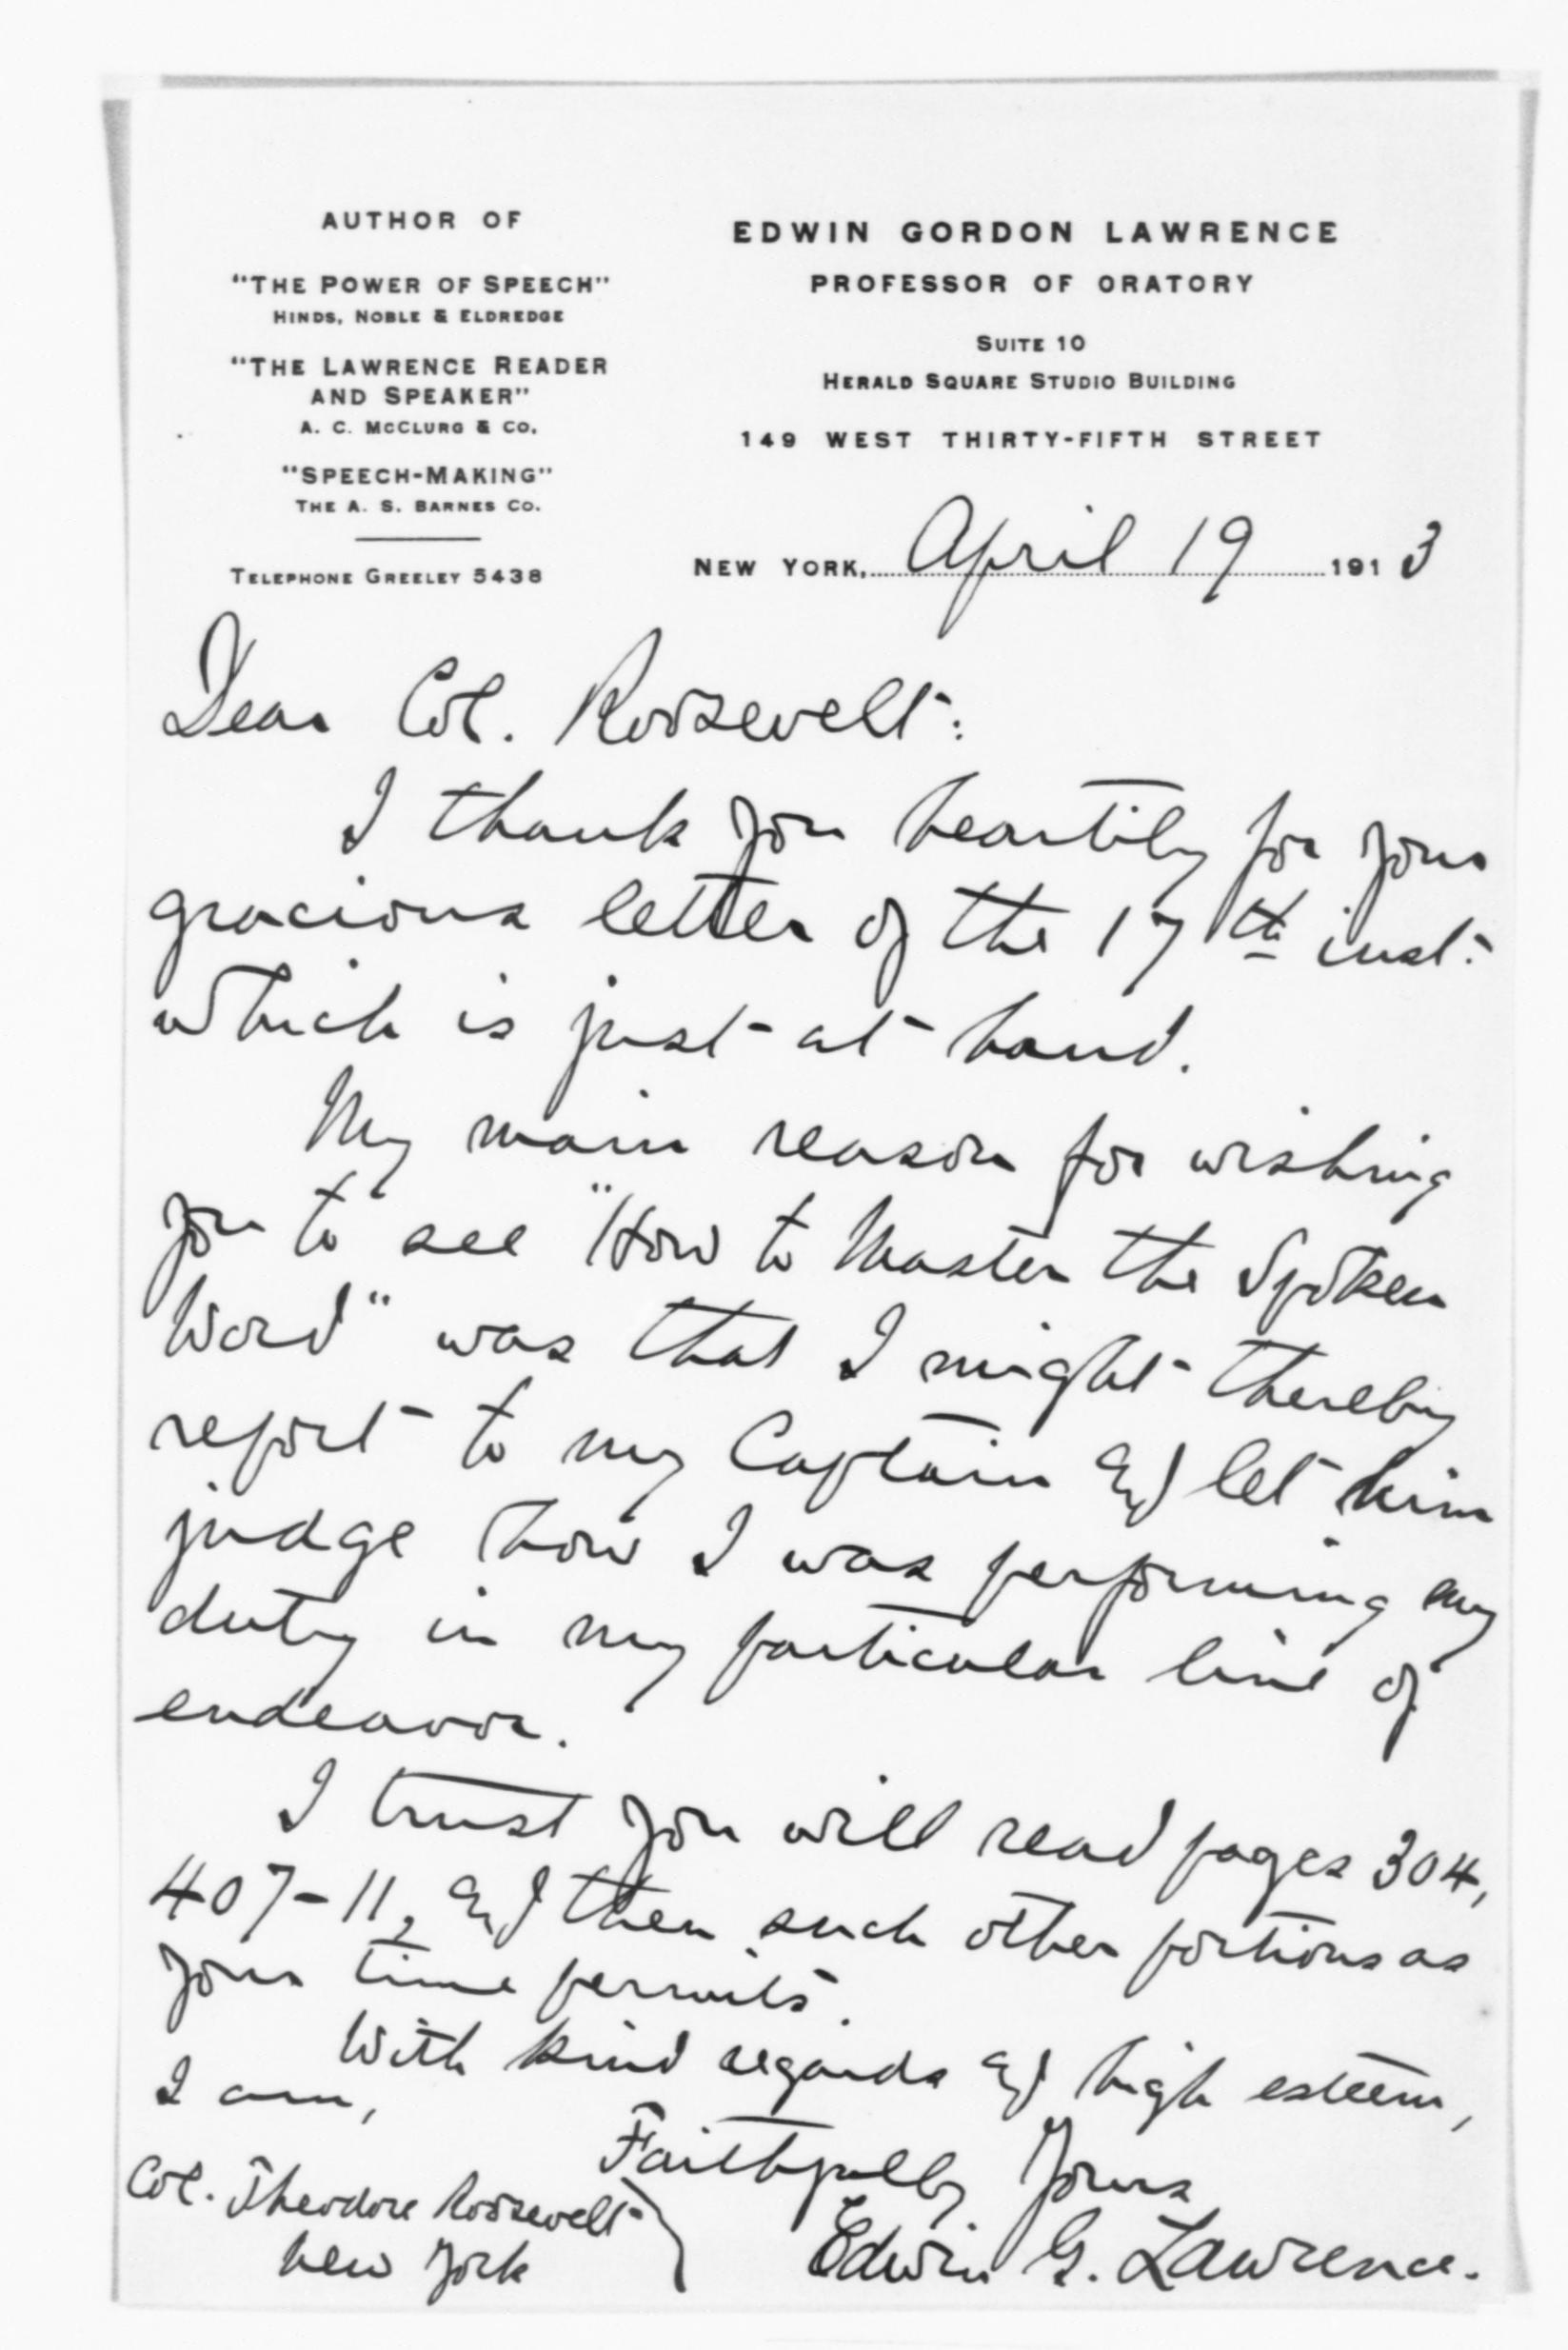 AUTHOR OF
"THE POWER OF SPEECH"
HINDS, NOBLE & ELDREDGE
"THE LAWRENCE READER
AND SPEAKER"
A. C. MCCLURG & CO.
"SPEECH-MAKING"
THE A. S. BARNES CO.
TELEPHONE GREELEY 5438
EDWIN GORDON LAWRENCE
PROFESSOR OF ORATORY
SUITE 10
HERALD SQUARE STUDIO BUILDING
149 WEST THIRTY-FIFTH STREET
NEW YORK, April 19 1913
Dear Col. Roosevelt:
I thank you heartily for your
gracious letter of the 17th inst.
which is just at hand.
My main reason for wishing
you to see "How to Master the Spoken
Word" was that I might thereby
report to my Captain and let him
judge how I was performing my
duty in my particular line of
endeavor.
I trust you will read pages 304,
407-11, and then such other portions as
your time permits.
With kind regards and high esteem,
I am,
Faithfully Yours
Edwin G. Lawrence.
Col. Theodore Roosevelt
New York